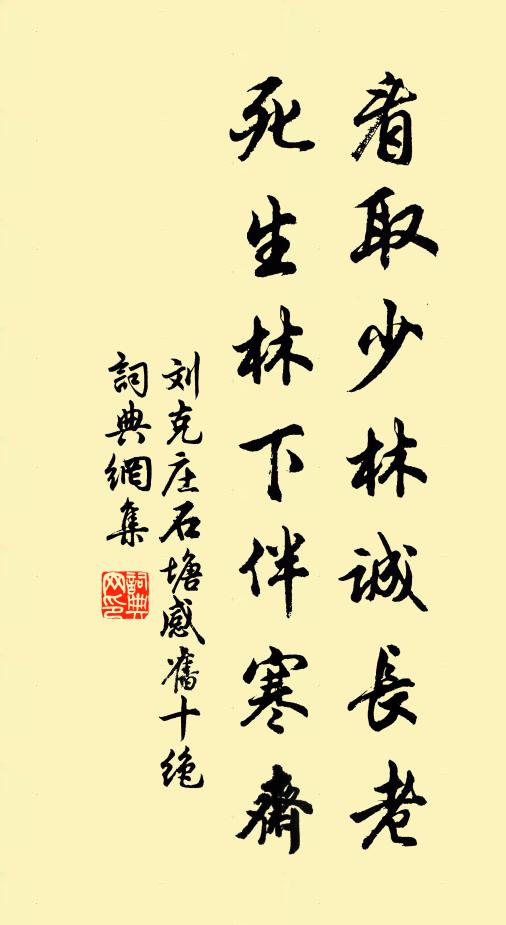 看取少林誠長老
死生林下伴寒齋
刘克庄石塘感舊十绝
詞典網集
詞典网印